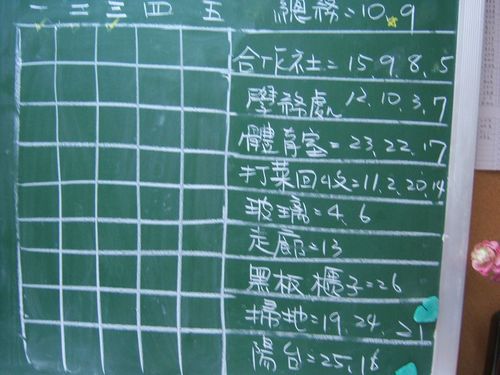 一 二 三 四 五
總務=10.9
合作社=15.9.8.5
學務處 12.10.3.7
體育室=23.22.17
打菜回收=11.2.20.14
玻璃=4.6
走廊=13
黑板 櫃子=26
掃地=19.24.21
陽台=25.18